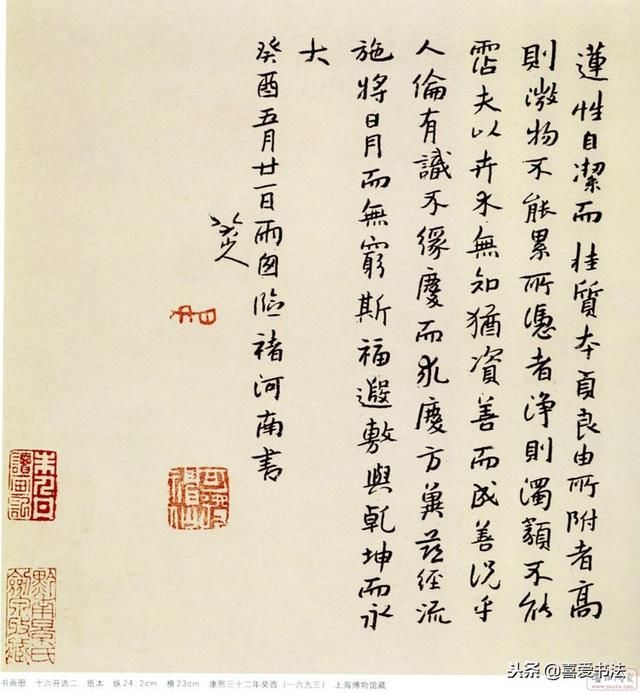 蓮性自潔而桂質本貞良由所附者高
則微物不能累所憑者淨則濁類不能
霑夫以卉木無知猶資善而成善況乎
人倫有識不緣慶而求慶方冀茲經流
施將日月而無窮斯福遐敷與乾坤而永
大
癸酉五月廿一日雨囱臨褚河南書
八大山人
可得神仙
书画册 十六开选二 纸本 纵24.2cm 横23cm 康熙三十二年癸酉(一六九三) 上海博物馆藏
头条 @喜爱书法